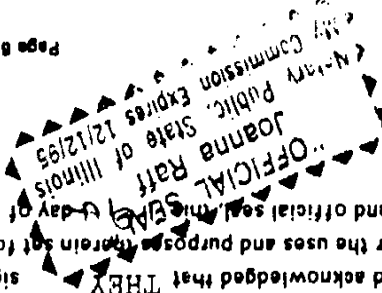 d acknowledged that THEY sig
r the uses and purposes therein set fo
and official seal, this day of
"OFFICIAL SEAL"
Joanna Raff
Notary Public, State of Illinois
My Commission Expires 12/12/95
Page 6